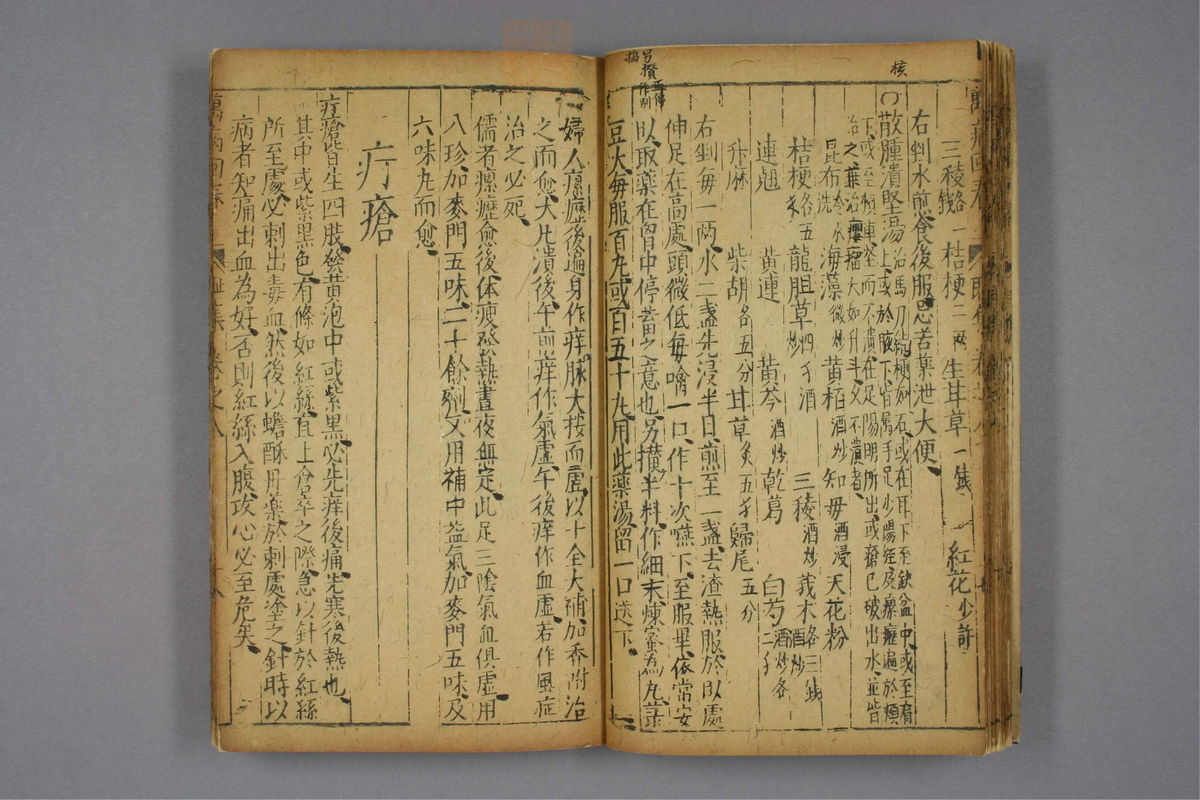 核
三稜各一錢 桔梗二兩 生甘草一錢 紅花少許
右剉水煎食後服忌苦藥泄大便
○散腫潰堅湯治馬刀結核如石或在耳下至缺盆中或至肩
上或於脇下皆屬手足少陽經及瘰癧遍於頰
下或至頰車堅而不潰在足陽明所出或瘡已破出水並皆
治之兼治癭瘤大如升斗久不潰者
昆布冷水洗 海藻微炒 黃栢酒炒 知母酒浸 天花粉
桔梗各五 龍胆草四 三稜酒炒 莪术各三錢
連翹 黃連 黃芩酒炒 乾葛 白芍
升麻 柴胡各五分 甘草炙五分 歸尾五分
右剉每一兩水二盞先浸半日煎至一盞去渣熱服於臥處
伸足在高處頭微低每噙一口作十次嚥下至服畢依常安
臥取藥在胷中停蓄之意也另攅半料作細末煉蜜為丸菉
豆大每服百丸或百五十丸用此藥湯留一口送下
一婦人瘰癧後遍身作痒脉大按而虛以十全大補加香附治
之而愈大凡潰後午前痒作氣虛午後痒作血虛若作風症
治之必死
儒者瘰癧愈後体疲發熱晝夜無定此足三陰氣血俱虛用
八珍加麥門五味二十餘劑又用補中益氣加麥門五味及
六味丸而愈
疔瘡
疔瘡皆生四肢發黃泡中或紫黑必先痒後痛先寒後熱也
其中或紫黑色有條如紅絲直上倉卒之際急以針於紅絲
所至處必刺出毒血然後以蟾酥丹藥於刺處塗之針時以
病者知痛出血為好否則紅絲入腹攻心必至危矣